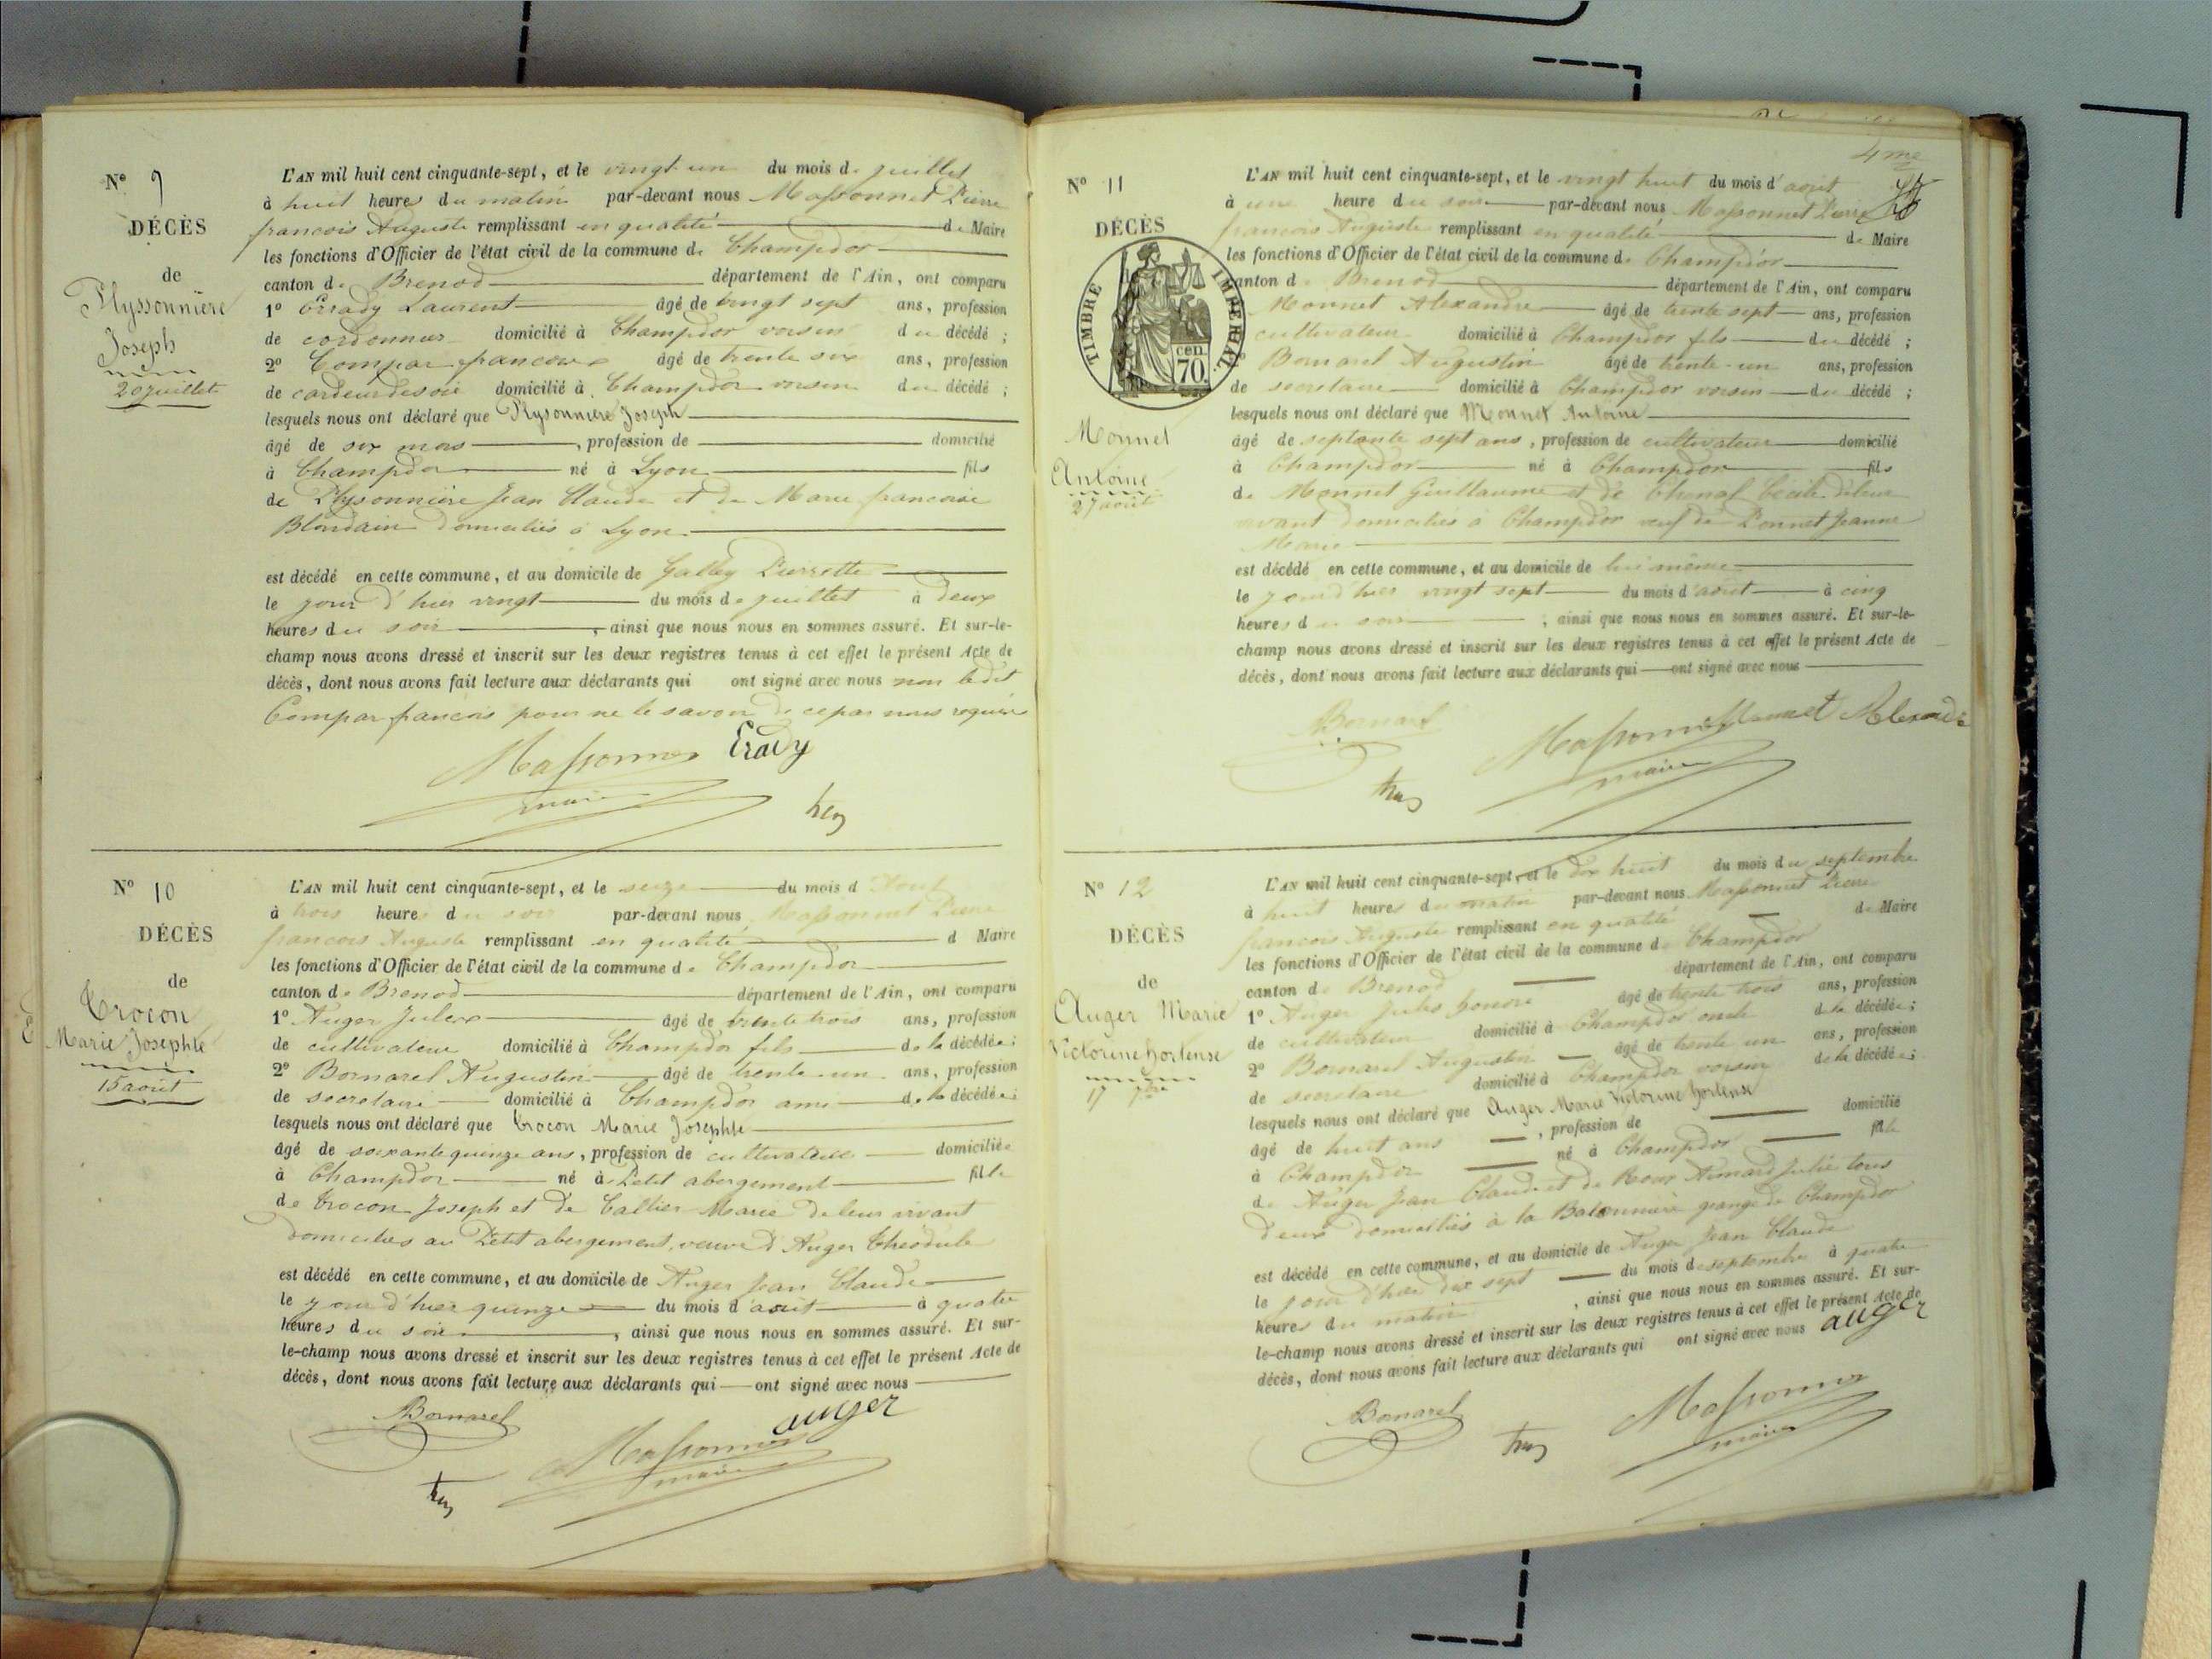 N° 9
DÉCÈS
de
Plyssonnière
Joseph
20 juillet
L'AN mil huit cent cinquante-sept, et le vingt un du mois de juillet
à huit heures du matin par-devant nous Massonnet Pierre
francois Auguste remplissant en qualité de Maire
les fonctions d'Officier de l'état civil de la commune de Champdor
canton de Brenod département de l'Ain, ont comparu
1° Erady Laurent âgé de vingt sept ans, profession
de cordonnier domicilié à Champdor voisin du décédé ;
2° Compar francois âgé de trente six ans, profession
de cardeur de soie domicilié à Champdor voisin du décédé ;
lesquels nous ont déclaré que Plysonniere Joseph
âgé de six mois, profession de domicilié
à Champdor né à Lyon fils
de Plysonnière Jean Claude et de Marie francoise
Blondain domiciliés à Lyon
est décédé en cette commune, et au domicile de Pierrette
le jour d'hier vingt du mois de juillet à deux
heures du soir, ainsi que nous nous en sommes assuré. Et sur-le-
champ nous avons dressé et inscrit sur les deux registres tenus à cet effet le présent Acte de
décès, dont nous avons fait lecture aux déclarants qui ont signé avec nous non ledit
Compar francois pour ne le savoir de ce par nous requis
Massonnet Erady
maire
N° 10
DÉCÈS
de
Trocon
Marie Josephte
15 aout
L'AN mil huit cent cinquante-sept, et le seize du mois d'Aout
à trois heures du soir par-devant nous Massonnet Pierre
francois Auguste remplissant en qualité d Maire
les fonctions d'Officier de l'état civil de la commune de Champdor
canton de Brenod département de l'Ain, ont comparu
1° Auger Jules âgé de trente trois ans, profession
de cultivateur domicilié à Champdor fils de la décédée ;
2° Bornarel Augustin âgé de trente-un ans, profession
de secretaire domicilié à Champdor ami de la décédée ;
lesquels nous ont déclaré que Trocon Marie Josephte
âgé de soixante quinze ans, profession de domiciliée
à Champdor né à Petit abergement fille
de Trocon Joseph et de Callier Marie de leur vivant
domiciliés au Petit abergement, veuve d'Auger Théodule
est décédé en cette commune, et au domicile de Auger Jean Claude
le jour d'hier quinze du mois d'aout à quatre
heures du soir, ainsi que nous nous en sommes assuré. Et sur-
le-champ nous avons dressé et inscrit sur les deux registres tenus à cet effet le présent Acte de
décès, dont nous avons fait lecture aux déclarants qui ont signé avec nous
Bornarel auger
Massonnet
maire
4me
N° 11
DÉCÈS
TIMBRE IMPÉRIAL
70 cen
Monnet
Antoine
27 aout
L'AN mil huit cent cinquante-sept, et le vingt huit du mois d'aout
à une heure du soir par-devant nous Massonnet Pierre
francois Auguste remplissant en qualité de Maire
les fonctions d'Officier de l'état civil de la commune de Champdor
canton de Brenod département de l'Ain, ont comparu
Monnet Alexandre âgé de trente sept ans, profession
cultivateur domicilié à Champdor fils du décédé ;
Bornarel Augustin âgé de trente-un ans, profession
de secretaire domicilié à Champdor voisin du décédé ;
lesquels nous ont déclaré que Monnet Antoine
âgé de septante sept ans, profession de cultivateur domicilié
à Champdor né à Champdor fils
de Monnet Guillaume et de Cécile de leur
vivant domiciliés à Champdor veuf de Jeanne
Marie
est décédé en cette commune, et au domicile de lui même
le jour d'hier vingt sept du mois d'aout à cinq
heures du soir, ainsi que nous nous en sommes assuré. Et sur-le-
champ nous avons dressé et inscrit sur les deux registres tenus à cet effet le présent Acte de
décès, dont nous avons fait lecture aux déclarants qui ont signé avec nous
Bornarel Massonnet Monnet Alexandre
maire
N° 12
DÉCÈS
de
Auger Marie
Victorine hortense
17 7bre
L'AN mil huit cent cinquante-sept, et le dix huit du mois de septembre
à huit heures du matin par-devant nous Massonnet Pierre
francois Auguste remplissant en qualité de Maire
les fonctions d'Officier de l'état civil de la commune de Champdor
canton de Brenod département de l'Ain, ont comparu
1° Auger Jules âgé de trente trois ans, profession
de cultivateur domicilié à Champdor oncle de la décédée ;
2° Bornarel Augustin âgé de trente un ans, profession
de secretaire domicilié à Champdor voisin de la décédée ;
lesquels nous ont déclaré que Auger Marie Victorine hortense
âgé de huit ans, profession de domicilié
à Champdor né à Champdor fille
de Auger Jean Claude et de Roux Julie tous
deux domiciliés à la grange de Champdor
est décédé en cette commune, et au domicile de Auger Jean Claude
le jour d'hier dix sept du mois de septembre à quatre
heures du matin, ainsi que nous nous en sommes assuré. Et sur-
le-champ nous avons dressé et inscrit sur les deux registres tenus à cet effet le présent Acte de
décès, dont nous avons fait lecture aux déclarants qui ont signé avec nous auger
Bornarel Massonnet
maire